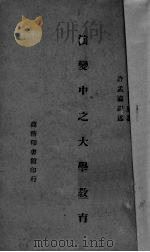 研狗
許孟瀛譯述
演變中之大學教育
商務印書館印行